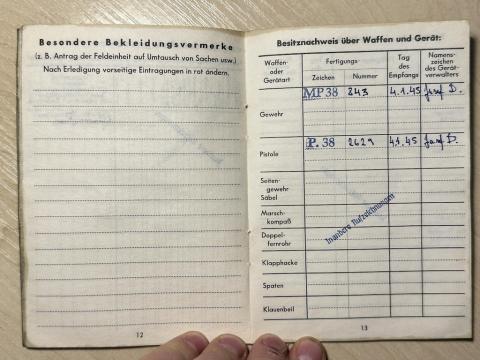 Besondere Bekleidungsvermerke
(z. B. Antrag der Feldeinheit auf Umtausch von Sachen usw.)
Nach Erledigung vorseitige Eintragungen in rot ändern.
12
Besitznachweis über Waffen und Gerät:
Waffen-
oder
Gerätart
Fertigungs-
Zeichen
Nummer
Tag
des
Empfangs
Namens-
zeichen
des Gerät-
verwalters
MP 38 243 4.1.45 Josef D.
Gewehr
P. 38 2629 4.1.45 Josef D.
Pistole
Seiten-
gewehr
Säbel
Marsch-
kompaß
Doppel-
fernrohr
Klapphacke
Spaten
Klauenbeil
13